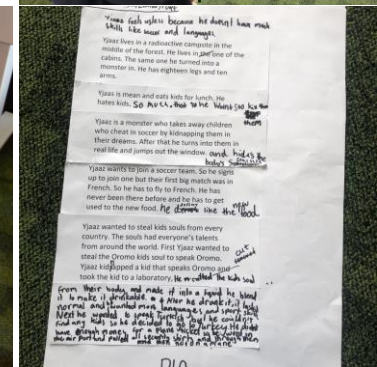 Yjaaz feels usless because he doesn't have much
skills like soccer and languages
Yjaaz lives in a radioactive campsite in the
middle of the forest. He lives in one of the
cabins. The same one he turned into a
monster in. He has eighteen legs and ten
arms.
Yjaaz is mean and eats kids for lunch. He
hates kids. So much, that he
them
Yjaaz is a monster who takes away children
who cheat in soccer by kidnapping them in
their dreams. After that he turns them into in
real life and jumps out the window. and hides the
body's
Yjaaz wants to join a soccer team. So he signs
up to join one but their first big match was in
French. So he has to fly to French. He has
never been there before and he has to get
used to the new food. he like the new food.
Yjaaz wanted to steal kids souls from every
country. The souls had everyone's talents
from around the world. First Yjaaz wanted to
steal the Oromo kids soul to speak Oromo.
Yjaaz kidnapped a kid that speaks Oromo and
took the kid to a laboratory. He the kids soul
From their body and made it into a liquid he
it to make it drinkable. After he drank it, it
normal and wanted more languages and sport skills
Next he wanted to speak Turkish but he couldn't
find any kids so he decided to go to Turkey. He didn't
have enough money for a plane ticket so he
the air port and pulled all security shirts and them
and on a plane